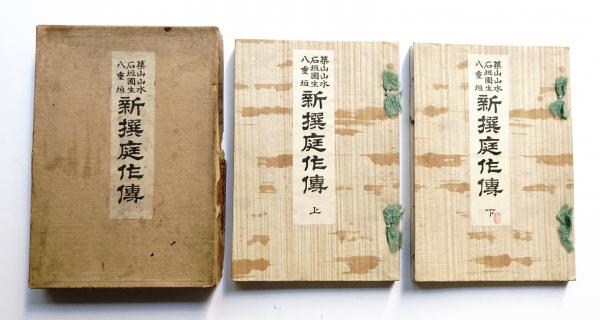 築山山水
石垣園生
八重垣
新撰庭作傳
築山山水
石垣園生
八重垣
新撰庭作傳
上
築山山水
石垣園生
八重垣
新撰庭作傳
下